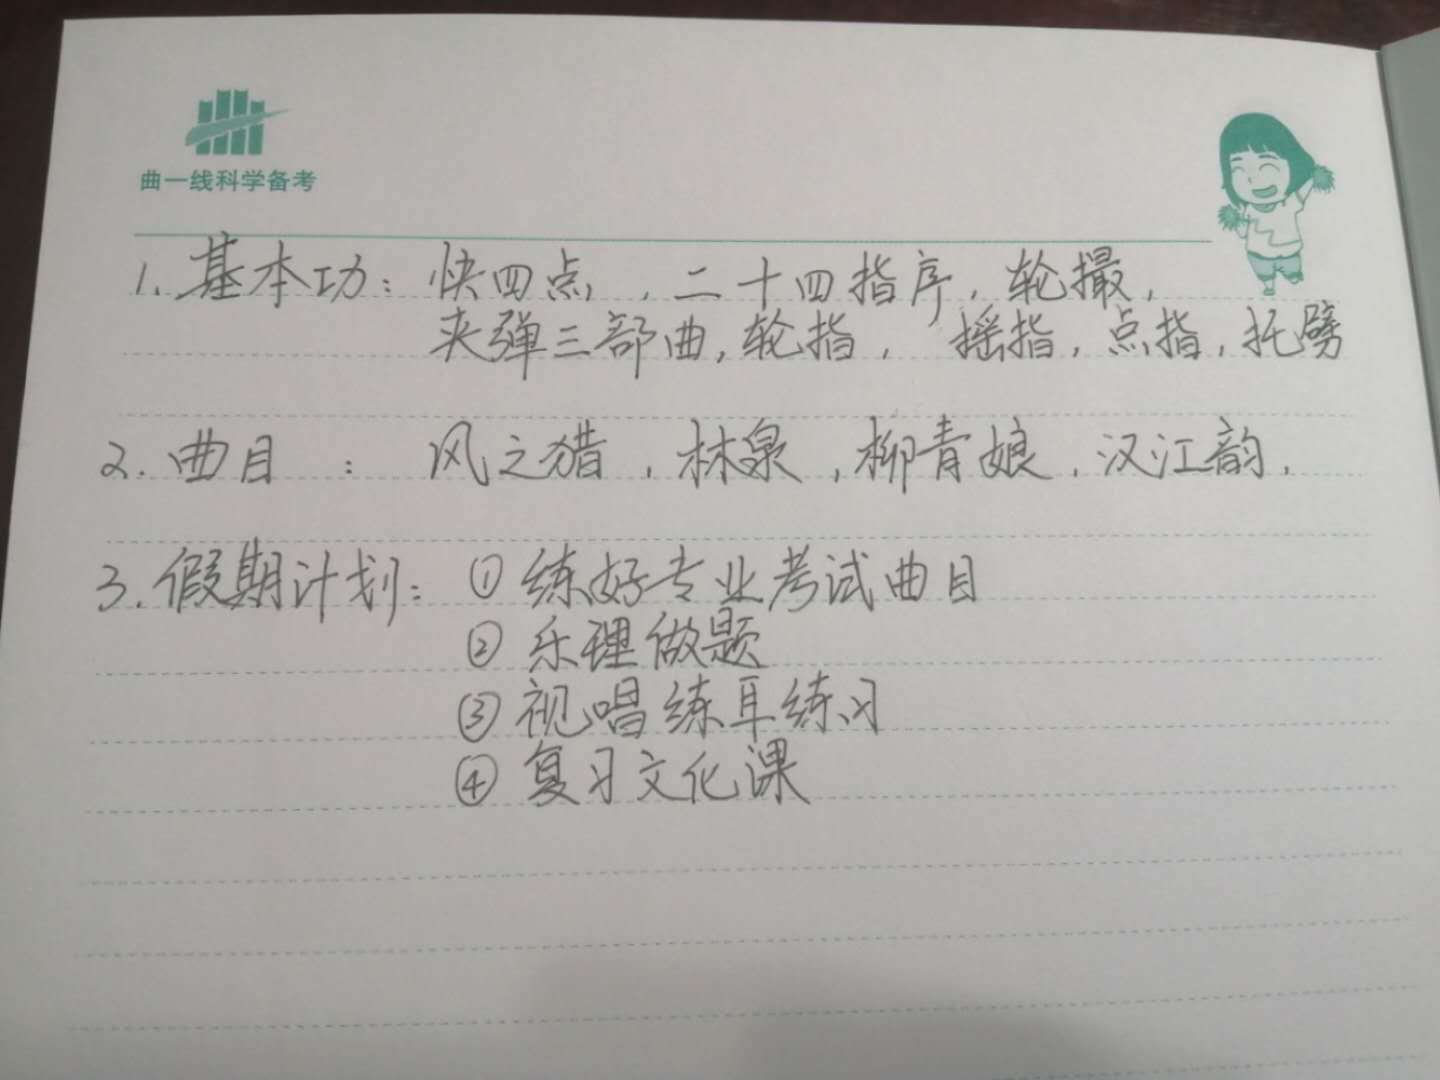 曲一线科学备考
1.基本功：快四点，二十四指序，轮撮，
夹弹三部曲，轮指，摇指，点指，托劈
2.曲目：风之猎，林泉，柳青娘，汉江韵，
3.假期计划：①练好专业考试曲目
②乐理做题
③视唱练耳练习
④复习文化课